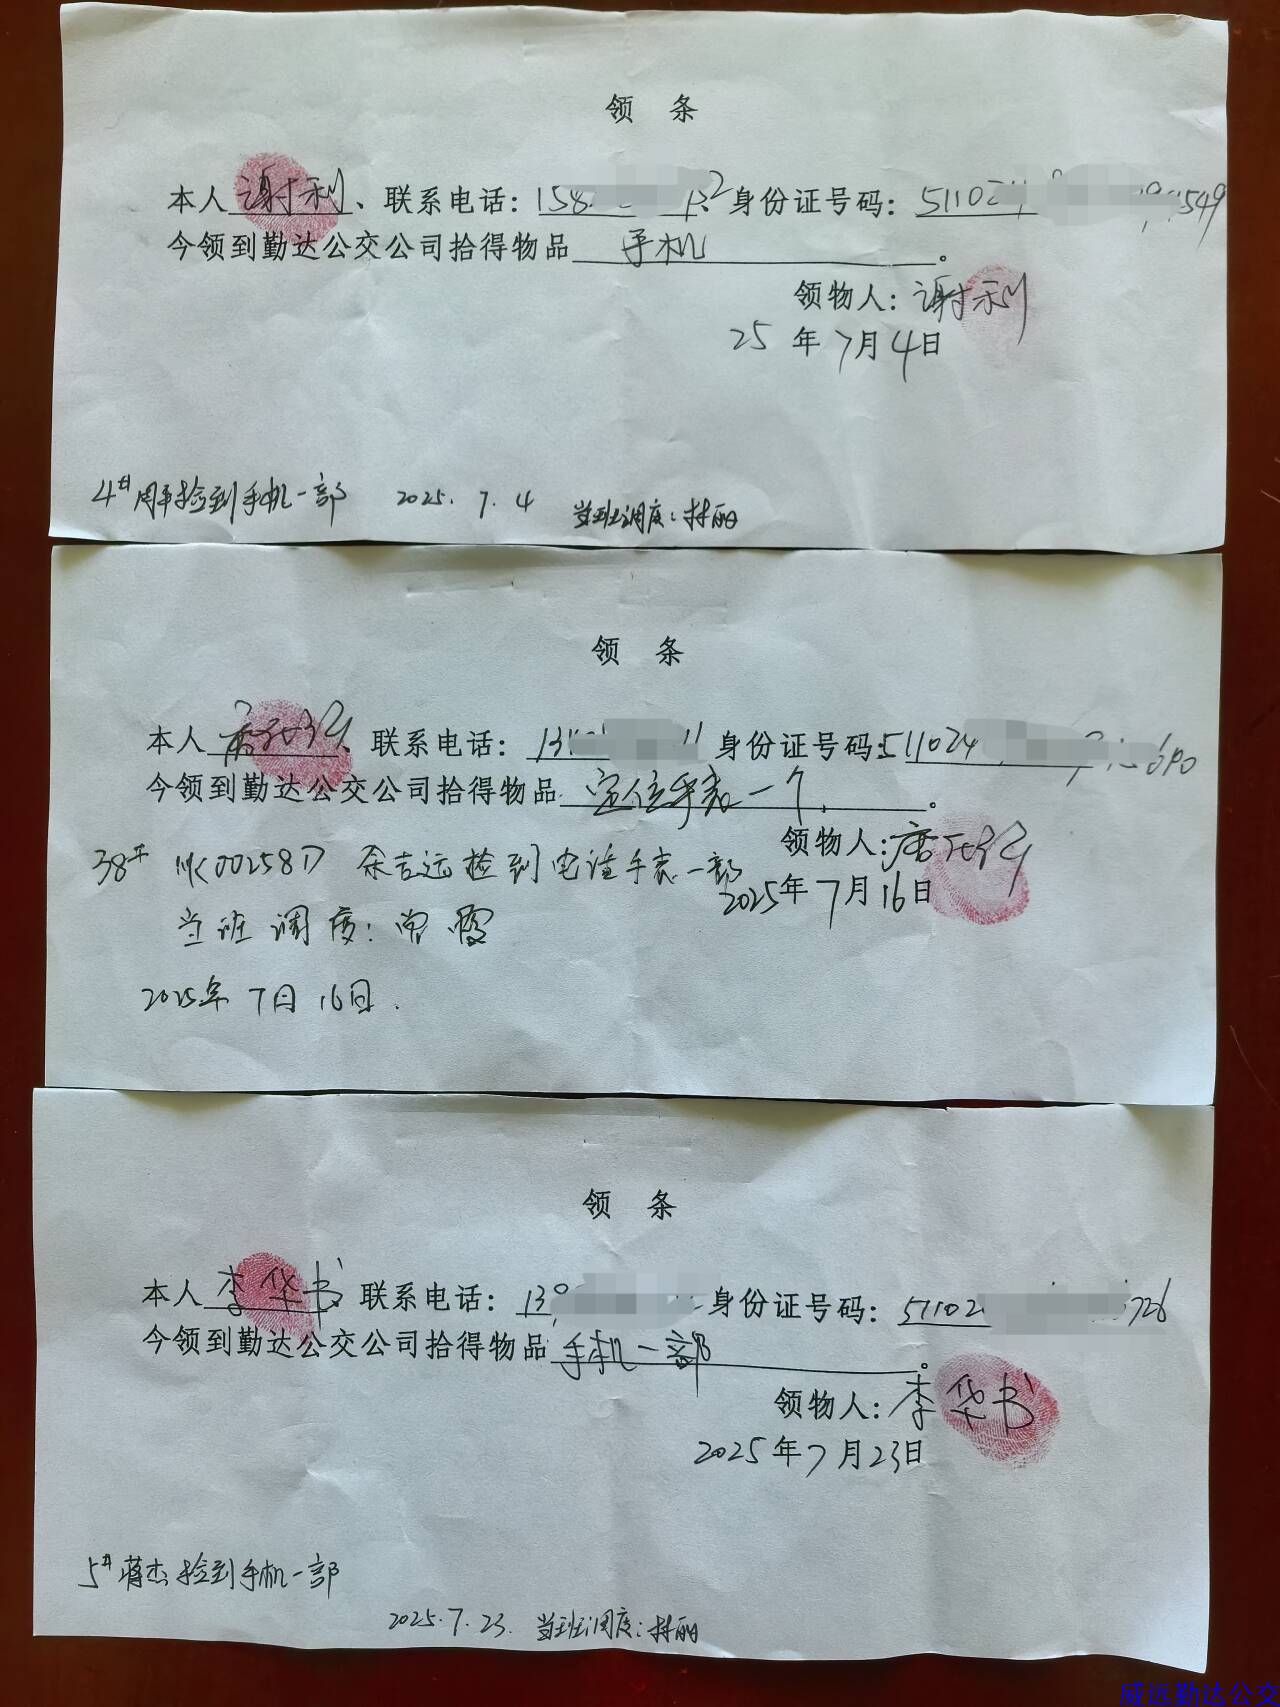 领 条
本人谢利、联系电话：158 2身份证号码：511024 549
今领到勤达公交公司拾得物品 手机 。
领物人：谢利
25年7月4日
4# 周平捡到手机一部 2025.7.4 当班调度：林丽
领 条
本人 联系电话：13 11身份证号码：511024
今领到勤达公交公司拾得物品 定位手表一个 。
领物人：
38# 川K00258D 余吉远捡到电话手表一部
2025年7月16日
当班调度：曾霞
2025年7月16日.
领 条
本人李华书、联系电话：139 身份证号码：51102 726
今领到勤达公交公司拾得物品 手机一部 。
领物人：李华书
2025年7月23日
5# 蒋杰捡到手机一部
2025.7.23. 当班调度：林丽
威远勤达公交